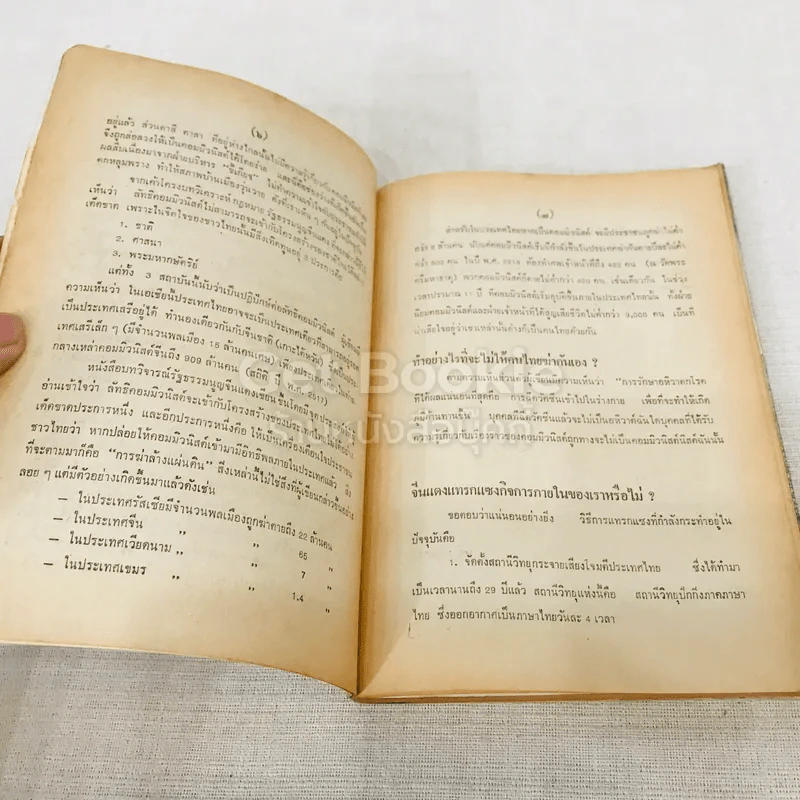 (๖)
อยู่แล้ว ส่วนคาสี คาลา ที่อยู่ห่างไกลนั้นไม่มีความรู้เกี่ยวกับคอมมิวนิสต์
จึงถูกล่อลวงให้เป็นคอมมิวนิสต์ได้โดยง่าย
ผลสืบเนื่องมาจากฝ่ายบริหาร
ตกหลุมพราง ทำให้สภาพบ้านเมืองวุ่นวาย ดังที่เราเห็น ๆ กันอยู่
จากเค้าโครงบทวิเคราะห์กฎหมาย รัฐธรรมนูญจีนแดง
เห็นว่า ลัทธิคอมมิวนิสต์ไม่สามารถจะเข้ากับโครงสร้างของชาติไทย
เด็ดขาด เพราะในจิตใจของชาวไทยนั้นมีสิ่งเทิดทูนอยู่ 3 ประการคือ
1. ชาติ
2. ศาสนา
3. พระมหากษัตริย์
แต่ทั้ง 3 สถาบันนี้นับว่าเป็นปฏิปักษ์ต่อลัทธิคอมมิวนิสต์
ความเห็นว่า ในเอเซียนี้ประเทศไทยอาจจะเป็นประเทศเดียวที่สามารถอยู่รอด
เป็นประเทศเสรีอยู่ได้ ทำนองเดียวกันกับจีนชาติ (เกาะไต้หวัน)
เทศเสรีเล็ก ๆ (มีจำนวนพลเมือง 15 ล้านคนเศษ) เพียงประเทศเดียว
กลางเหล่าคอมมิวนิสต์จีนถึง 909 ล้านคน (สถิติปี พ.ศ. 2517)
หนังสือบทวิจารณ์รัฐธรรมนูญจีนแดงเขียนขึ้นโดยมีจุดประสงค์
อ่านเข้าใจว่า ลัทธิคอมมิวนิสต์จะเข้ากับโครงสร้างของประเทศ
เด็ดขาดประการหนึ่ง และอีกประการหนึ่งคือ ให้เป็นเครื่องเตือนใจประชาชน
ชาวไทยว่า หากปล่อยให้คอมมิวนิสต์เข้ามามีอิทธิพลภายในประเทศแล้ว สิ่ง
ที่จะตามมาก็คือ “การฆ่าล้างแผ่นดิน” สิ่งเหล่านี้ไม่ใช่สิ่งที่ผู้เขียนกล่าวขึ้นอย่าง
ลอย ๆ แต่มีตัวอย่างเกิดขึ้นมาแล้วดังเช่น
— ในประเทศรัสเซียมีจำนวนพลเมืองถูกฆ่าตายถึง 22 ล้านคน
— ในประเทศจีน ” ” 65 ”
— ในประเทศเวียดนาม ” ” 7 ”
— ในประเทศเขมร ” ” 1.4 ”
(๗)
สำหรับในประเทศไทยหากเป็นคอมมิวนิสต์ จะมีประชาชนถูกฆ่าไม่ต่ำ
กว่า 8 ล้านคน
กว่า 500 คน ในปี พ.ศ. ทางฝ่ายเจ้าหน้าที่ถึง 422 คน (ณ วัดพระ
ศรีมหาธาตุ) พวกคอมมิวนิสต์ตายไม่ต่ำกว่า 400 คน เช่นเดียวกัน ในช่วง
เวลาประมาณ 11 ปี ที่คอมมิวนิสต์เริ่มอุบัติขึ้นภายในประเทศไทยนั้น ทั้งฝ่าย
นิยมคอมมิวนิสต์และฝ่ายเจ้าหน้าที่ได้สูญเสียชีวิตไม่ต่ำกว่า 9,000 คน เป็นที่
น่าเสียใจอยู่ว่าเขาเหล่านั้นต่างก็เป็นคนไทยด้วยกัน
ทำอย่างไรที่จะไม่ให้คนไทยฆ่ากันเอง ?
ตามความเห็นส่วนตัวผู้เขียนมีความเห็นว่า “การรักษาอหิวาตกโรค
ที่ได้ผลแน่นอนที่สุดคือ การฉีดวัคซีนเข้าไปในร่างกาย เพื่อที่จะทำให้เกิด
ภูมิต้านทานขึ้น บุคคลที่ฉีดวัคซีนแล้วจะไม่เป็นอหิวาต์ฉันใดบุคคลที่ได้รับ
ความรู้เกี่ยวกับเรื่องราวของคอมมิวนิสต์ถูกทางจะไม่เป็นคอมมิวนิสต์นิสต์ฉันนั้น
จีนแดงแทรกแซงกิจการภายในของเราหรือไม่ ?
ขอตอบว่าแน่นอนอย่างยิ่ง วิธีการแทรกแซงที่กำลังกระทำอยู่ใน
ปัจจุบันคือ
1. จัดตั้งสถานีวิทยุกระจายเสียงโจมตีประเทศไทย ซึ่งได้ทำมา
เป็นเวลานานถึง 29 ปีแล้ว สถานีวิทยุแห่งนี้คือ สถานีวิทยุปักกิ่งภาคภาษา
ไทย ซึ่งออกอากาศเป็นภาษาไทยวันละ 4 เวลา
Get Bookie